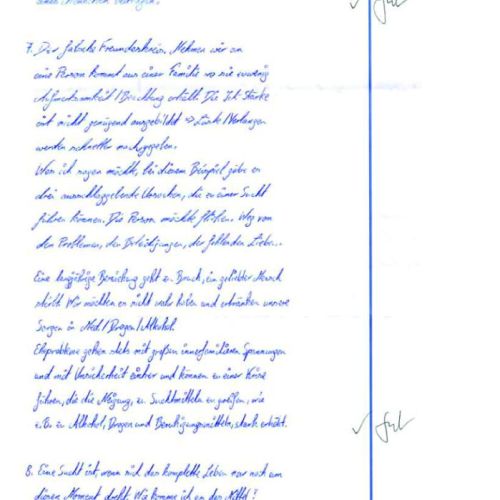 einen Menschen
✓ gut
7. Der falsche Freundeskreis. Nehmen wir an
eine Person kommt aus einer Familie wo sie wenig
Aufmerksamkeit/Beachtung erhält. Die Ich-Stärke
ist nicht genügend ausgebildet => Süchte/Verlangen
werden schneller nachgegeben.
Was ich sagen möchte, bei diesem Beispiel gäbe es
drei ausschlaggebende Ursachen, die zu einer Sucht
führen können. Die Person möchte fliehen. Weg von
den Problemen, den Beleidigungen, der fehlenden Liebe...
Eine langjährige Beziehung geht zu Bruch, ein geliebter Mensch
stirbt. Wir möchten es nicht wahr haben und ertränken unsere
Sorgen in Med/Drogen/Alkohol.
Eheprobleme gehen stets mit großen innerfamiliären Spannungen
und mit Unsicherheit einher und können zu einer Krise
führen, die die Neigung, zu Suchtmitteln zu greifen, wie
z.B. zu Alkohol, Drogen und Beruhigungsmitteln, stark erhöht.
✓ gut
8. Eine Sucht ist, wenn sich das komplette Leben nur noch um
diesen Moment dreht. Wie komme ich an das Mittel?